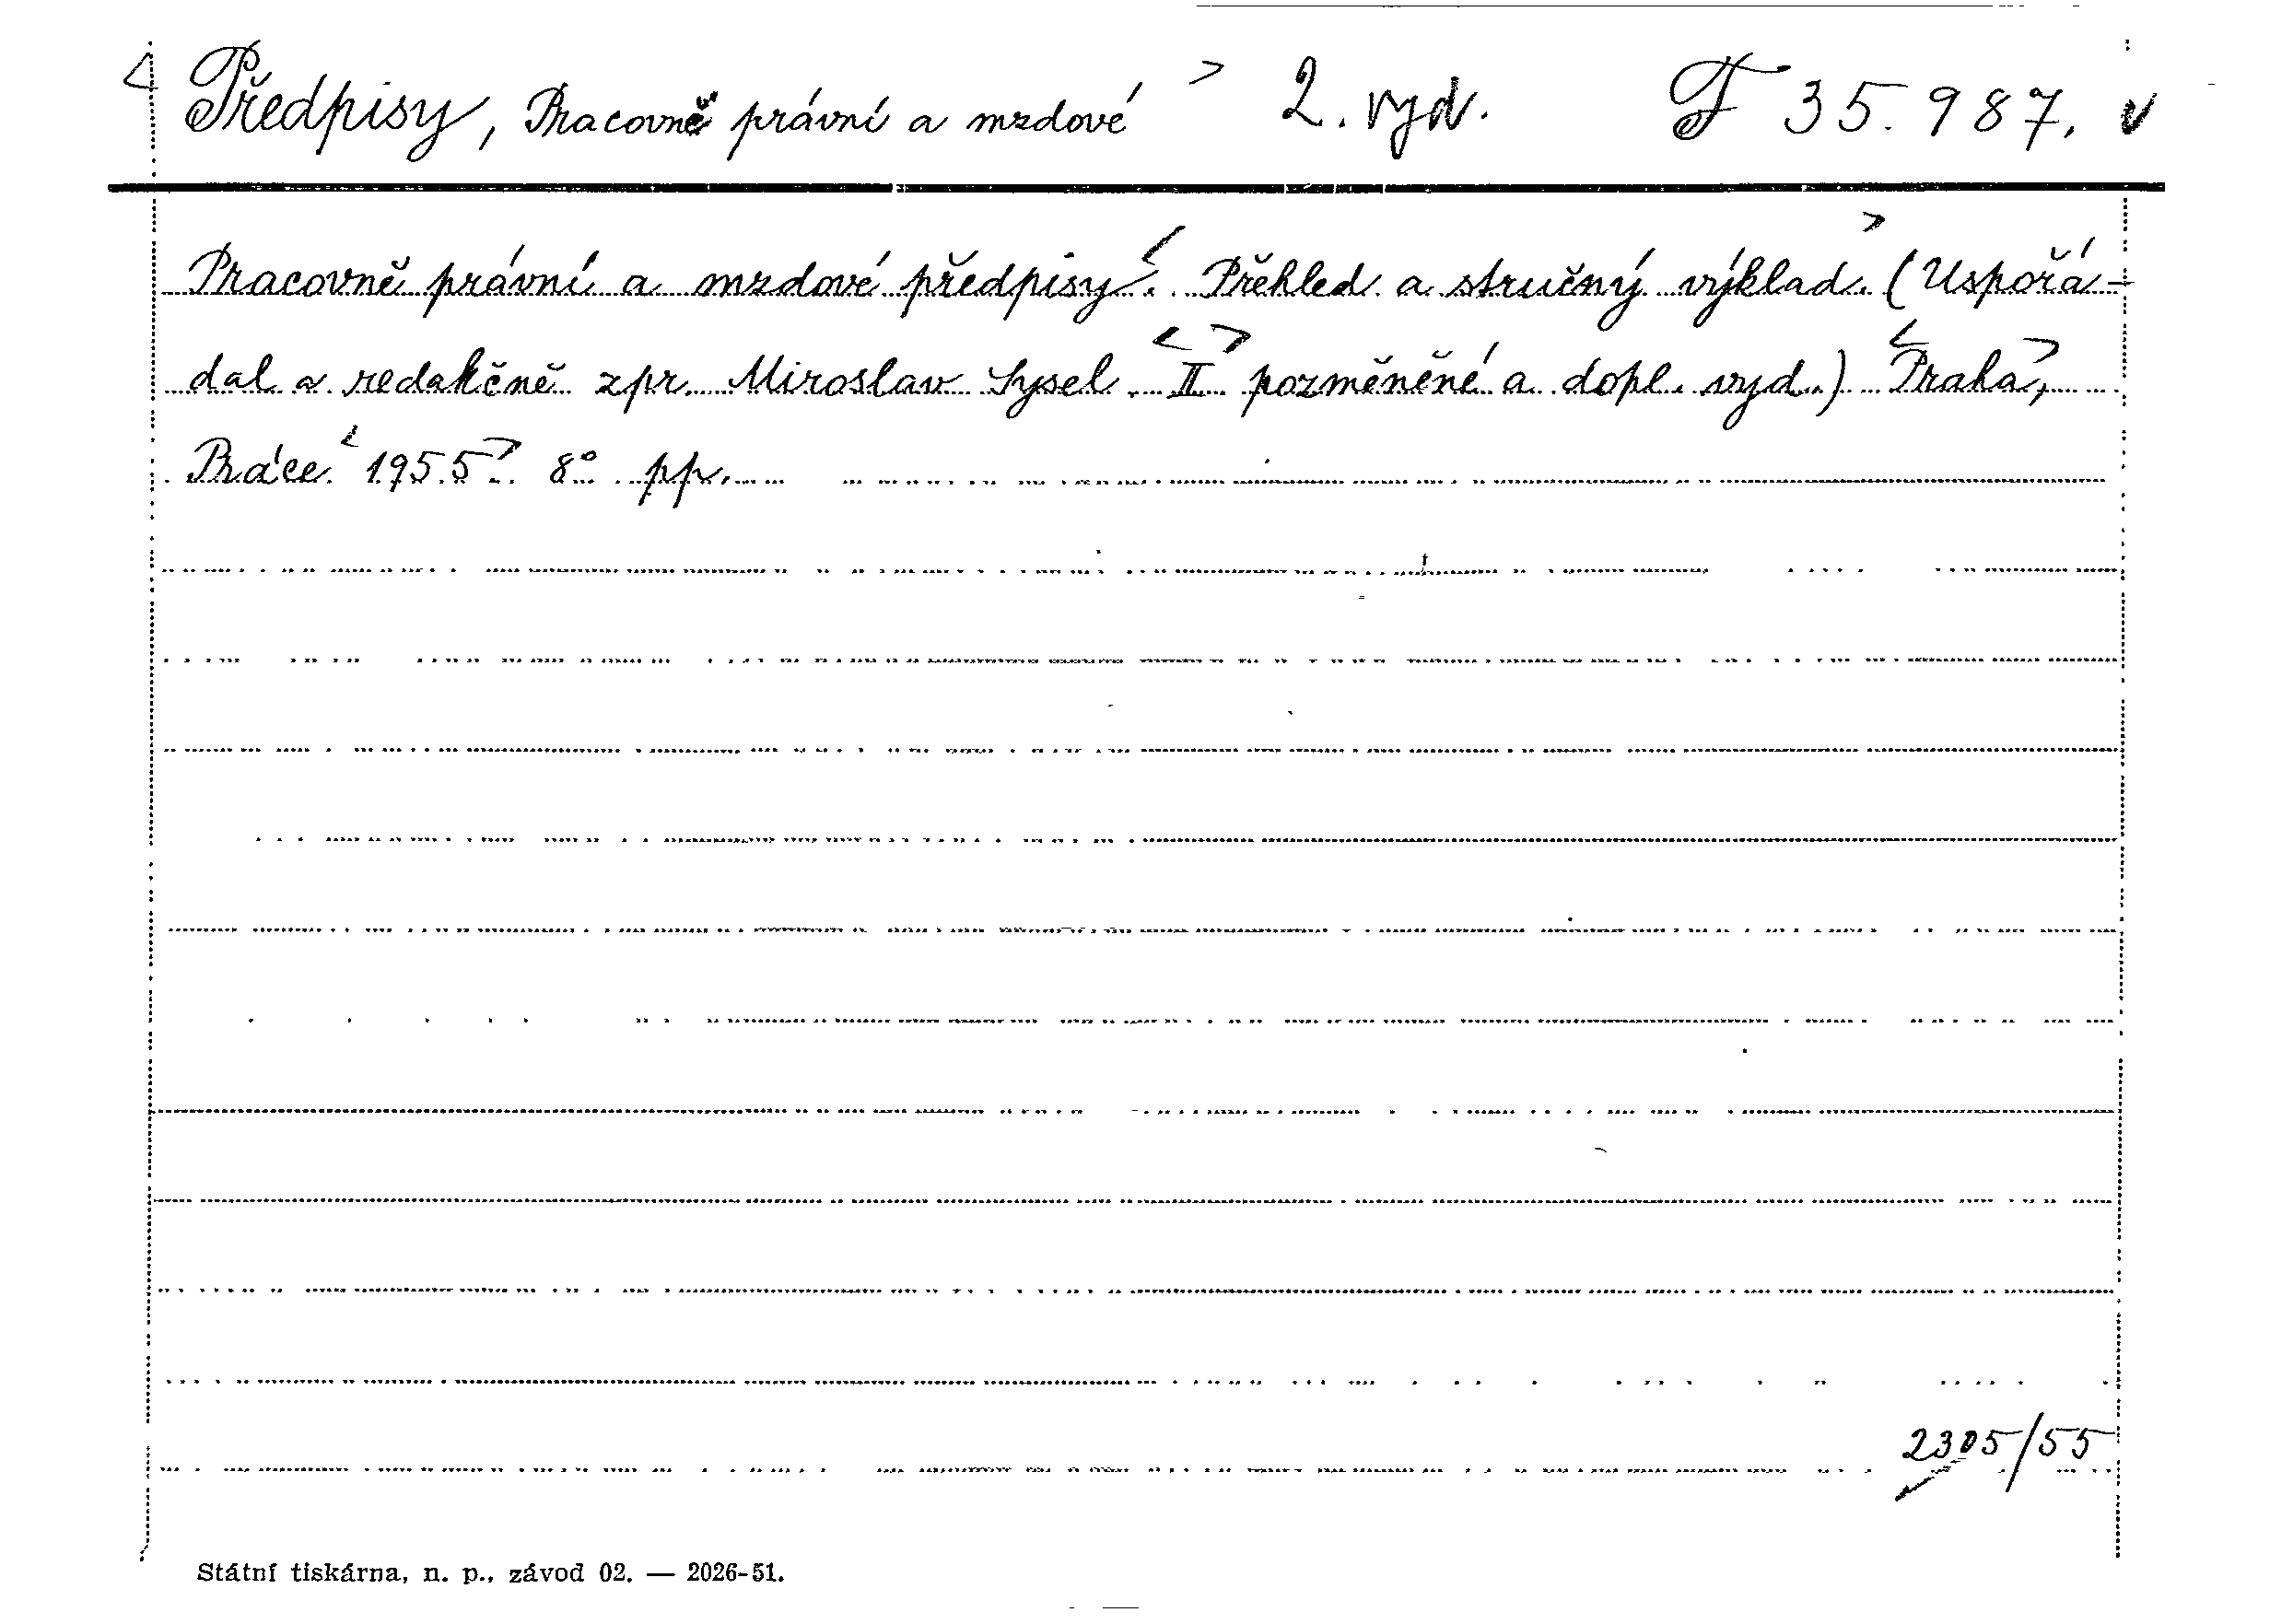 < Předpisy, Pracovně právní a mzdové > 2. vyd. F 35.987. v
Pracovně právní a mzdové předpisy. < Přehled a stručný výklad. > (Uspořá-
dal a redakčně zpr. Miroslav Sysel. < II > pozměněné a dopl. vyd.) < Praha, >
Práce < 1955. > 8° pp.
2305/55
Státní tiskárna, n. p., závod 02. — 2026-51.